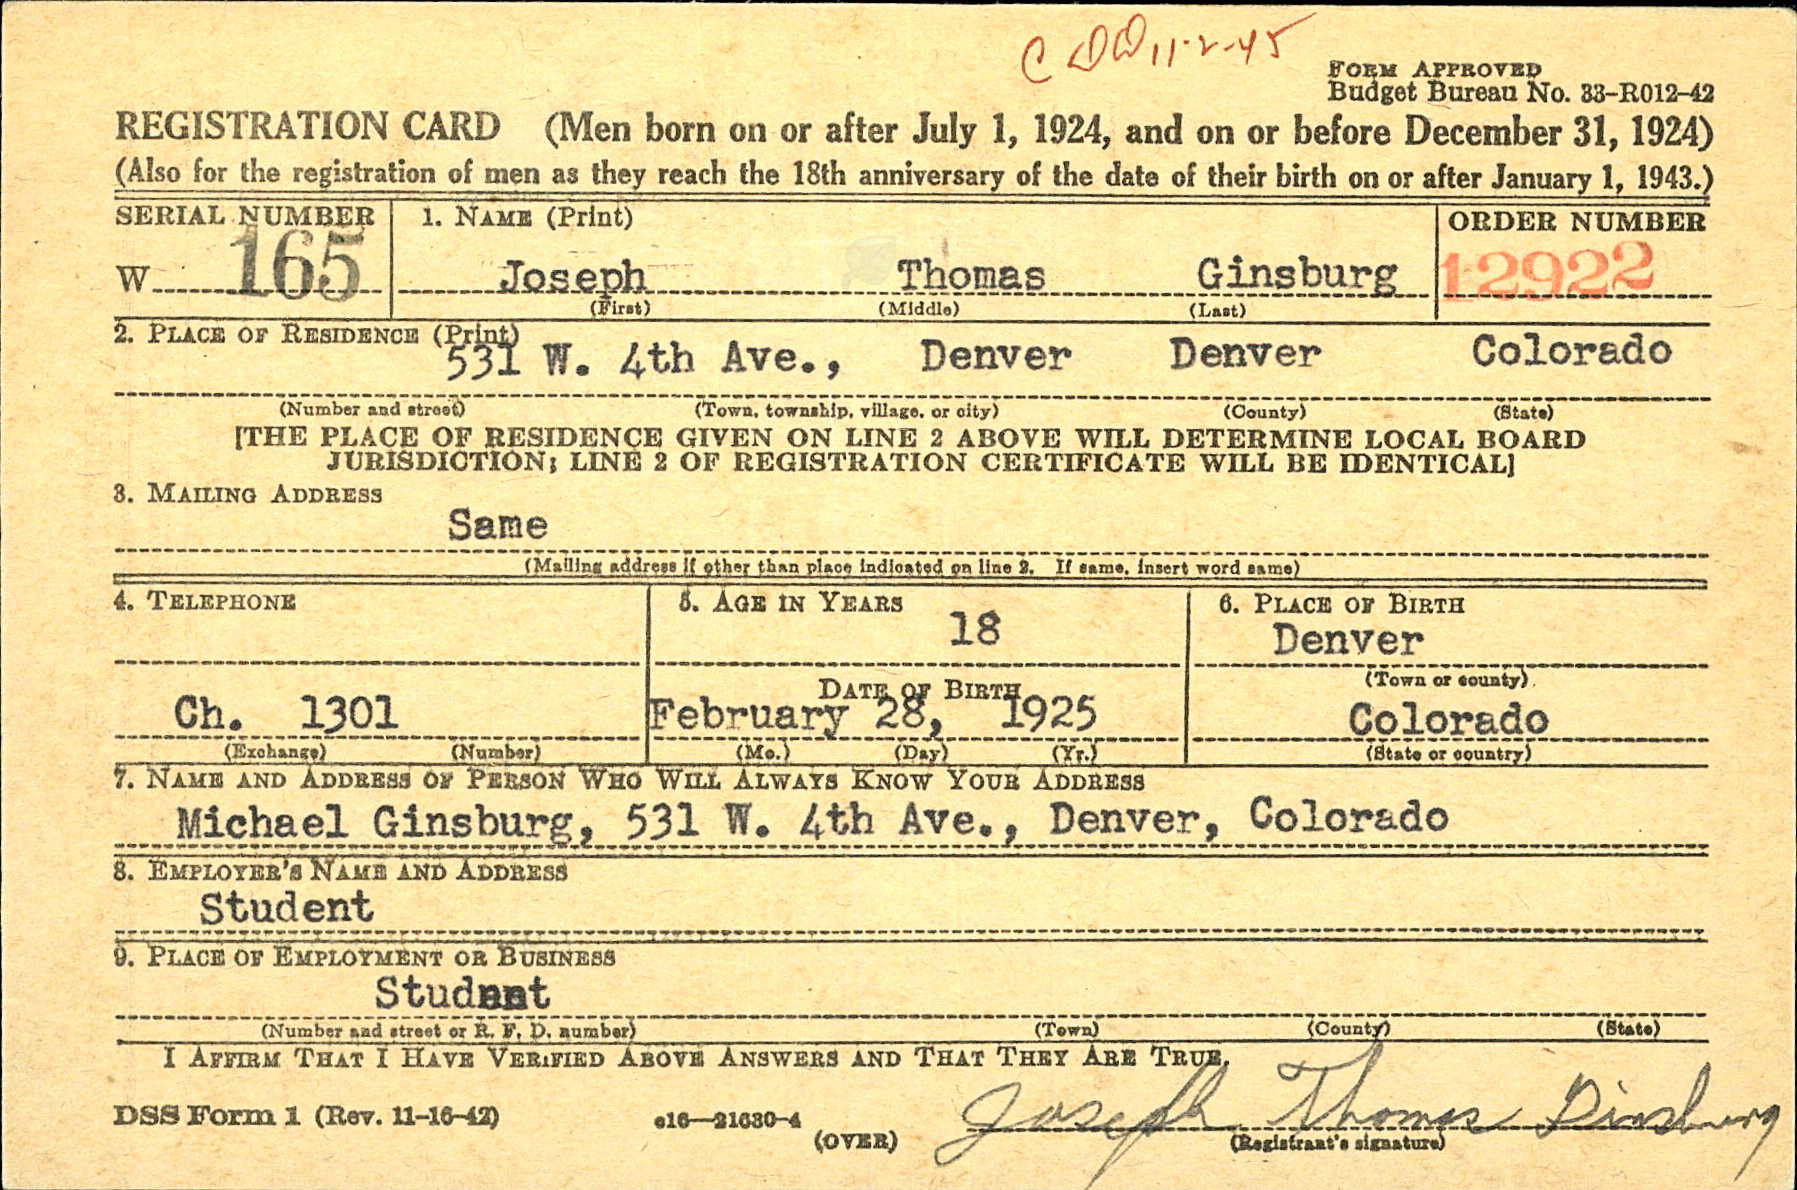 C DD 11-2-45
FORM APPROVED
Budget Bureau No. 33-R012-42
REGISTRATION CARD (Men born on or after July 1, 1924, and on or before December 31, 1924)
(Also for the registration of men as they reach the 18th anniversary of the date of their birth on or after January 1, 1943.)
SERIAL NUMBER 1. NAME (Print) ORDER NUMBER
W 165 Joseph Thomas Ginsburg 12922
(First) (Middle) (Last)
2. PLACE OF RESIDENCE (Print)
531 W. 4th Ave., Denver Denver Colorado
(Number and street) (Town, township, village, or city) (County) (State)
[THE PLACE OF RESIDENCE GIVEN ON LINE 2 ABOVE WILL DETERMINE LOCAL BOARD
JURISDICTION; LINE 2 OF REGISTRATION CERTIFICATE WILL BE IDENTICAL]
3. MAILING ADDRESS
Same
(Mailing address if other than place indicated on line 2. If same, insert word same)
4. TELEPHONE 5. AGE IN YEARS 6. PLACE OF BIRTH
18 Denver
DATE OF BIRTH (Town or county)
Ch. 1301 February 28, 1925 Colorado
(Exchange) (Number) (Mo.) (Day) (Yr.) (State or country)
7. NAME AND ADDRESS OF PERSON WHO WILL ALWAYS KNOW YOUR ADDRESS
Michael Ginsburg, 531 W. 4th Ave., Denver, Colorado
8. EMPLOYER'S NAME AND ADDRESS
Student
9. PLACE OF EMPLOYMENT OR BUSINESS
Student
(Number and street or R. F. D. number) (Town) (County) (State)
I AFFIRM THAT I HAVE VERIFIED ABOVE ANSWERS AND THAT THEY ARE TRUE.
DSS Form 1 (Rev. 11-16-42) e16—21630-4 Joseph Thomas Ginsburg
(OVER) (Registrant's signature)